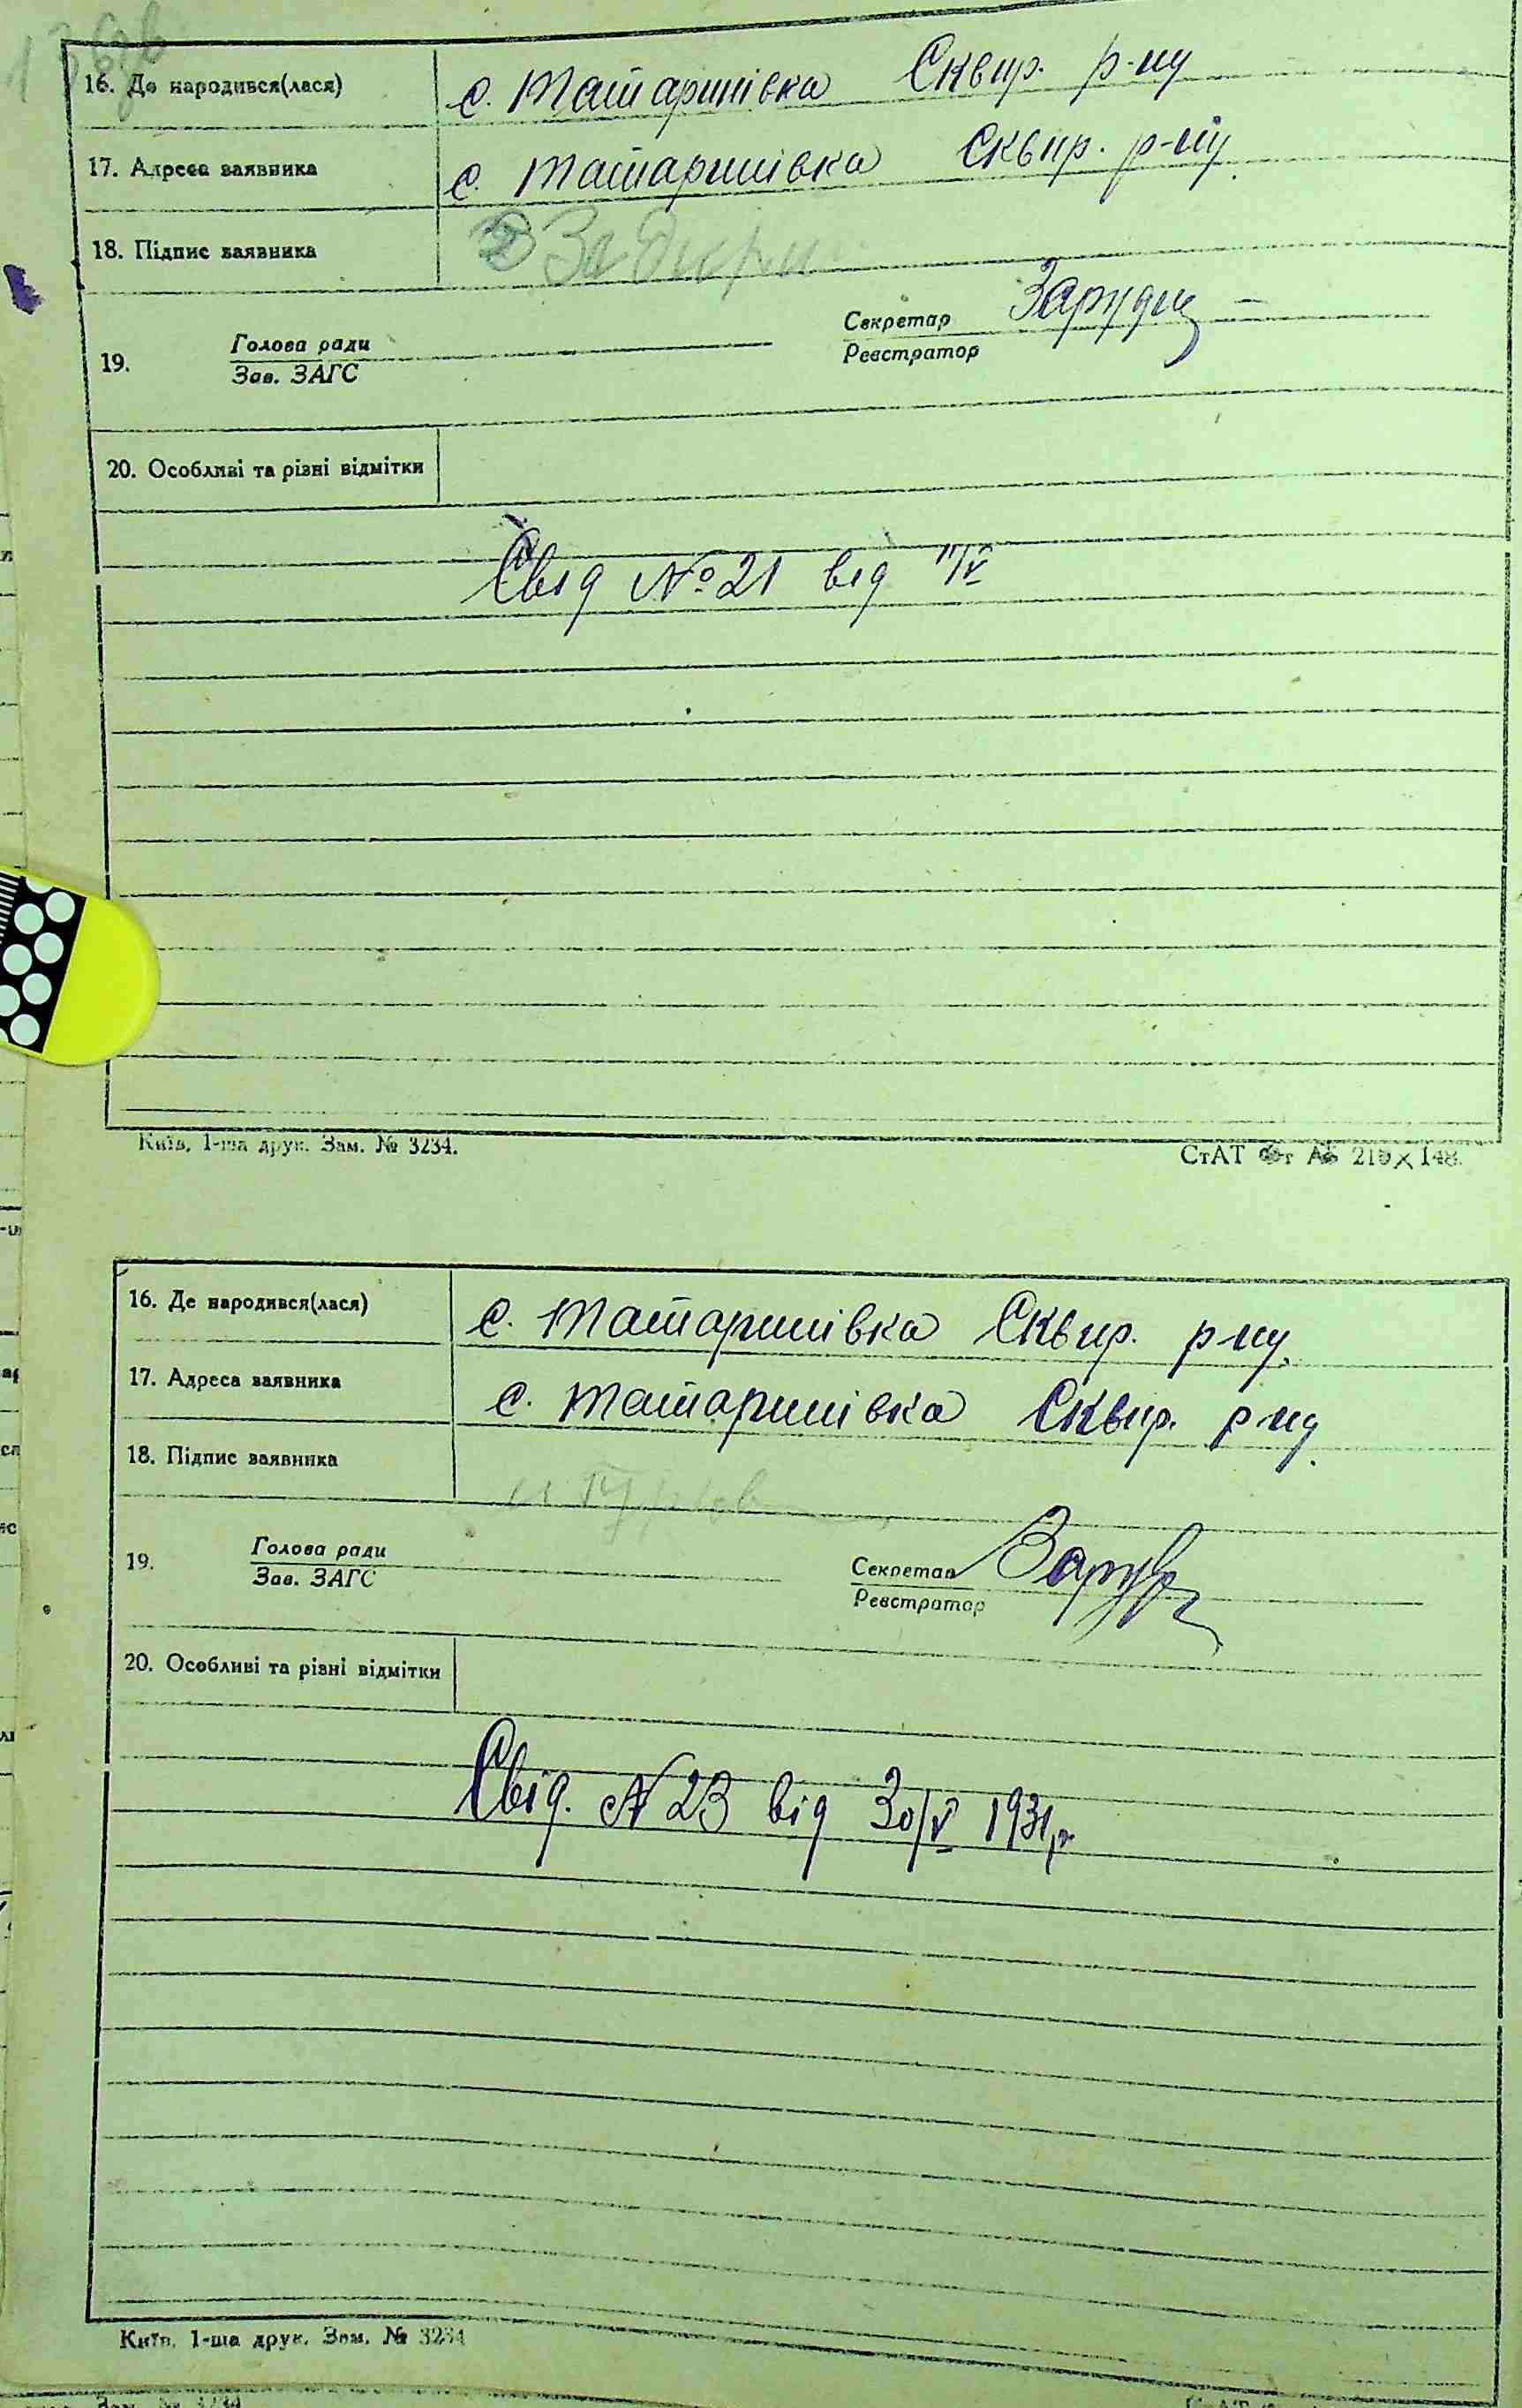 16. Де народився(лася) с. Татаринівка Сквир. р-ну
17. Адреса заявника с. Татаринівка Сквир. р-ну.
18. Підпис заявника
Голова ради Секретар
19.
Зав. ЗАГС Реєстратор
20. Особливі та різні відмітки
Свід № 21 від 11/V
Київ, 1-ша друк. Зам. № 3234.
16. Де народився(лася) с. Татаринівка Сквир. р-ну.
17. Адреса заявника с. Татаринівка Сквир. р-ну.
18. Підпис заявника
Голова ради Секретар
19.
Зав. ЗАГС Реєстратор
20. Особливі та різні відмітки
Свід. № 23 від 30/V 1931 р.
Київ, 1-ша друк. Зам. № 3234